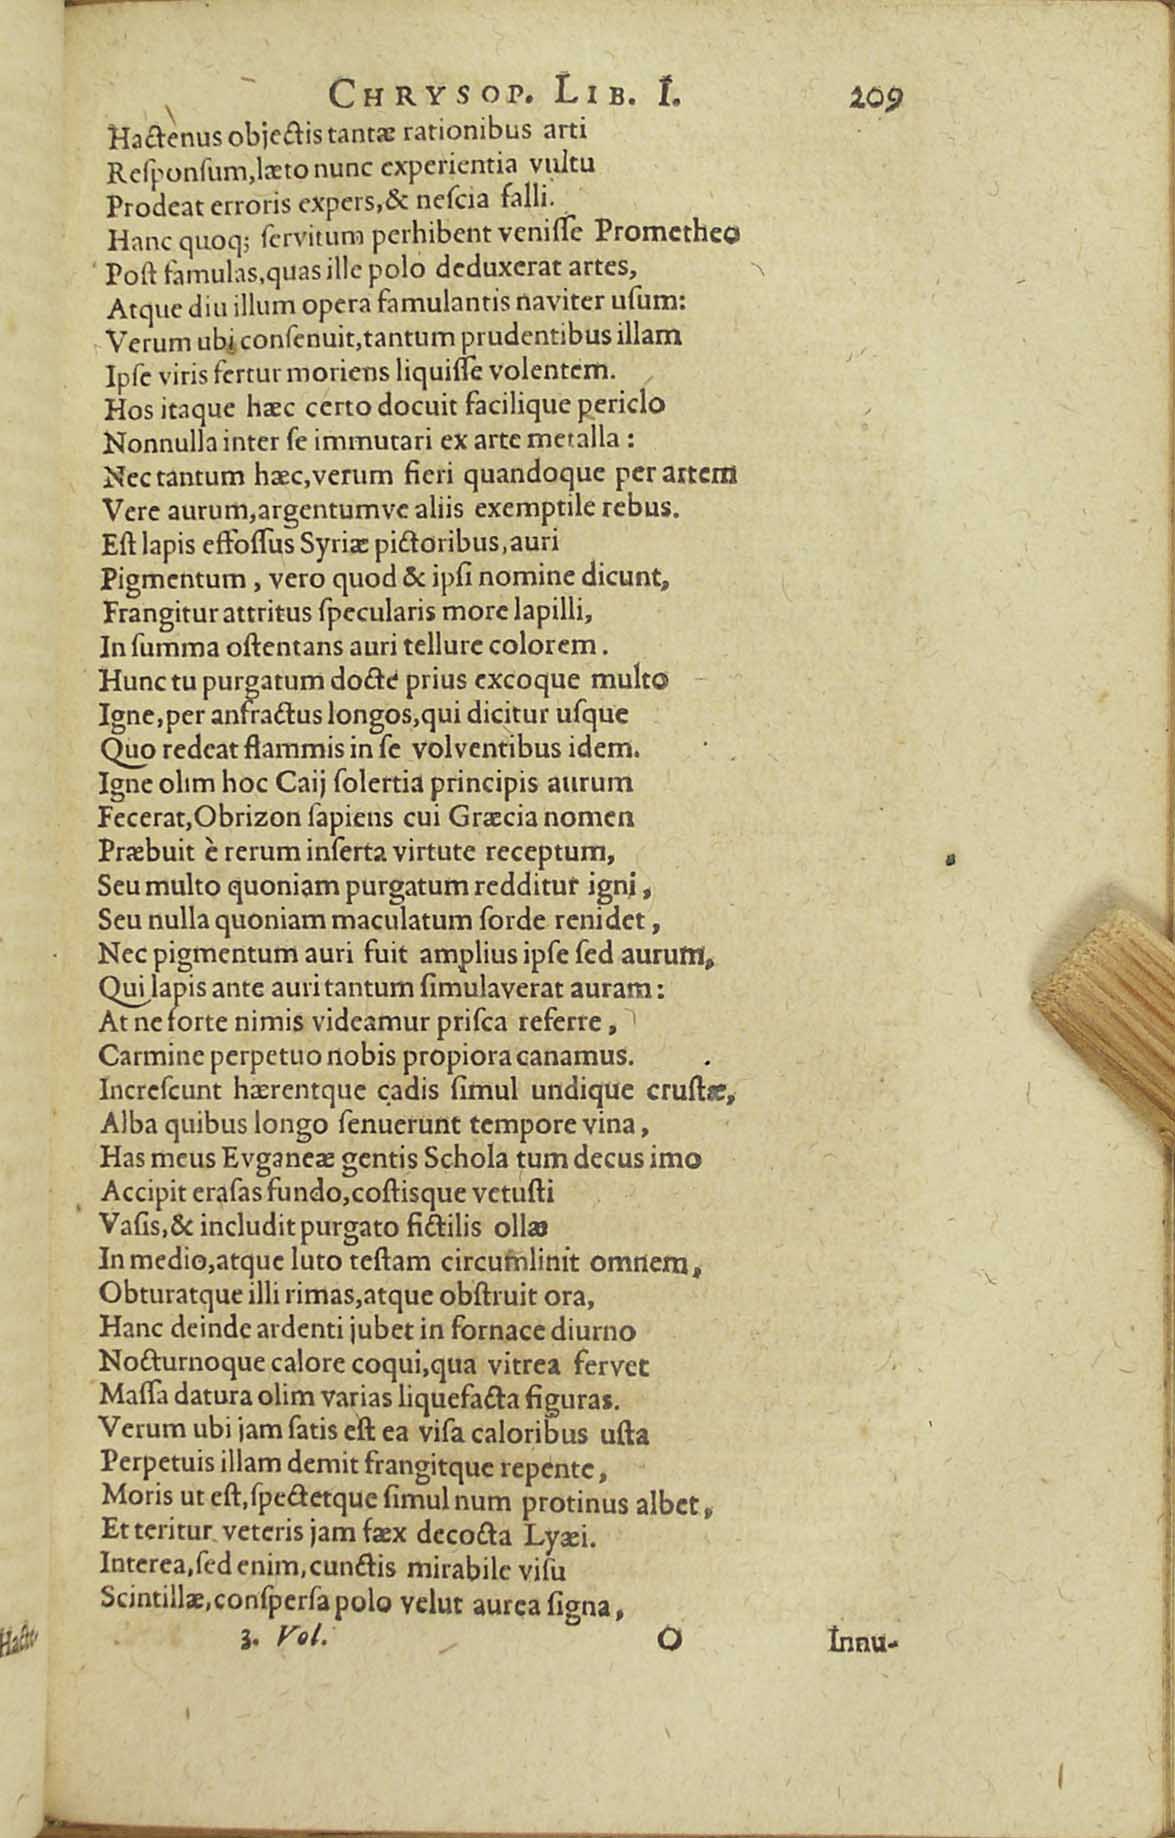 CHRYSOP. LIB. I. 209
Hactenus objectis tantæ rationibus arti
Reſponſum, læto nunc experientia vultu
Prodeat erroris expers, & neſcia falli.
Hanc quoq; ſervitum perhibent veniſſe Prometheo
Poſt famulas, quas ille polo deduxerat artes,
Atque diu illum opera famulantis naviter uſum:
Verum ubi conſenuit, tantum prudentibus illam
Ipſe viris fertur moriens liquiſſe volentem.
Hos itaque hæc certo docuit facilique periclo
Nonnulla inter ſe immutari ex arte metalla:
Nec tantum hæc, verum fieri quandoque per artem
Vere aurum, argentumve aliis exemptile rebus.
Eſt lapis effoſſus Syriæ pictoribus, auri
Pigmentum, vero quod & ipſi nomine dicunt,
Frangitur attritus ſpecularis more lapilli,
In ſumma oſtentans auri tellure colorem.
Hunc tu purgatum docte prius excoque multo
Igne, per anfractus longos, qui dicitur uſque
Quo redeat flammis in ſe volventibus idem.
Igne olim hoc Caij ſolertia principis aurum
Fecerat, Obrizon ſapiens cui Græcia nomen
Præbuit è rerum inſerta virtute receptum,
Seu multo quoniam purgatum redditur igni,
Seu nulla quoniam maculatum ſorde renidet,
Nec pigmentum auri fuit amplius ipſe ſed aurum,
Qui lapis ante auri tantum ſimulaverat auram:
At ne forte nimis videamur priſca referre,
Carmine perpetuo nobis propiora canamus.
Increſcunt hærentque cadis ſimul undique cruſtæ,
Alba quibus longo ſenuerunt tempore vina,
Has meus Evganeæ gentis Schola tum decus imo
Accipit eraſas fundo, coſtisque vetuſti
Vaſis, & includit purgato fictilis ollæ
In medio, atque luto teſtam circumlinit omnem,
Obturatque illi rimas, atque obſtruit ora,
Hanc deinde ardenti jubet in fornace diurno
Nocturnoque calore coqui, qua vitrea fervet
Maſſa datura olim varias liquefacta figuras.
Verum ubi jam ſatis eſt ea viſa caloribus uſta
Perpetuis illam demit frangitque repente,
Moris ut eſt, ſpectetque ſimul num protinus albet,
Et teritur veteris jam fæx decocta Lyæi.
Interea, ſed enim, cunctis mirabile viſu
Scintillæ, conſperſa polo velut aurea ſigna,
3. Vol. O Innu-
Hacte-